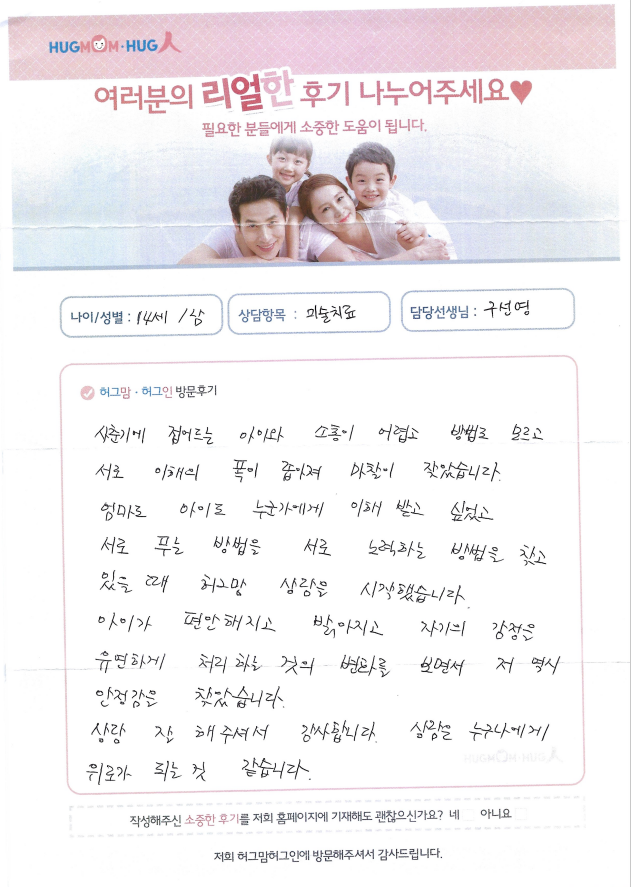 HUGMOM·HUG人
여러분의 리얼한 후기 나누어주세요♥
필요한 분들에게 소중한 도움이 됩니다.
나이/성별 : 14세 / 남
상담항목 : 미술치료
담당선생님 : 구선영
허그맘·허그인 방문후기
사춘기에 접어드는 아이와 소통이 어렵고 방법도 모르고
서로 이해의 폭이 좁아져 마찰이 잦았습니다.
엄마도 아이도 누군가에게 이해 받고 싶었고
서로 푸는 방법을 서로 노력하는 방법을 찾고
있을 때 허그맘 상담을 시작했습니다.
아이가 편안해지고 밝아지고 자기의 감정을
유연하게 처리하는 것의 변화를 보면서 저 역시
안정감을 찾았습니다.
상담 잘 해주셔서 감사합니다. 상담은 누구나에게
위로가 되는 것 같습니다.
작성해주신 소중한 후기를 저희 홈페이지에 기재해도 괜찮으신가요? 네 아니요
저희 허그맘허그인에 방문해주셔서 감사드립니다.